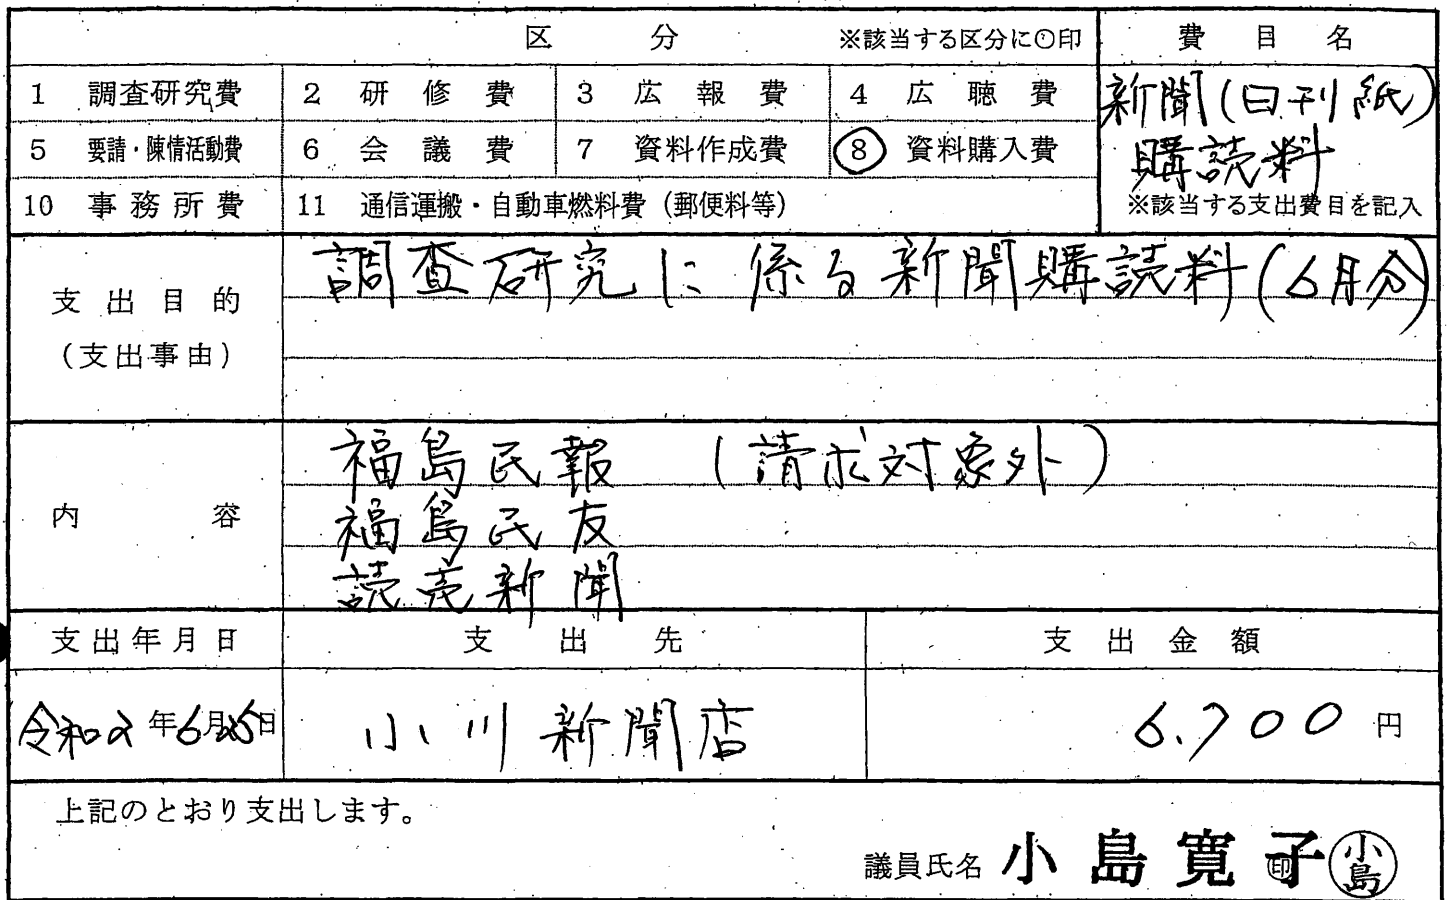 区 分 ※該当する区分に○印 費目名
1 調査研究費 2 研修費 3 広報費 4 広聴費 新聞(日刊紙)
5 要請・陳情活動費 6 会議費 7 資料作成費 8 資料購入費 購読料
10 事務所費 11 通信運搬・自動車燃料費(郵便料等) ※該当する支出費目を記入
支出目的 調査研究に係る新聞購読料(6月分)
(支出事由)
福島民報 (請求対象外)
内容 福島民友
読売新聞
支出年月日 支出先 支出金額
令和2年6月25日 小川新聞店 6.700円
上記のとおり支出します。
議員氏名 小島寛子 印 小島